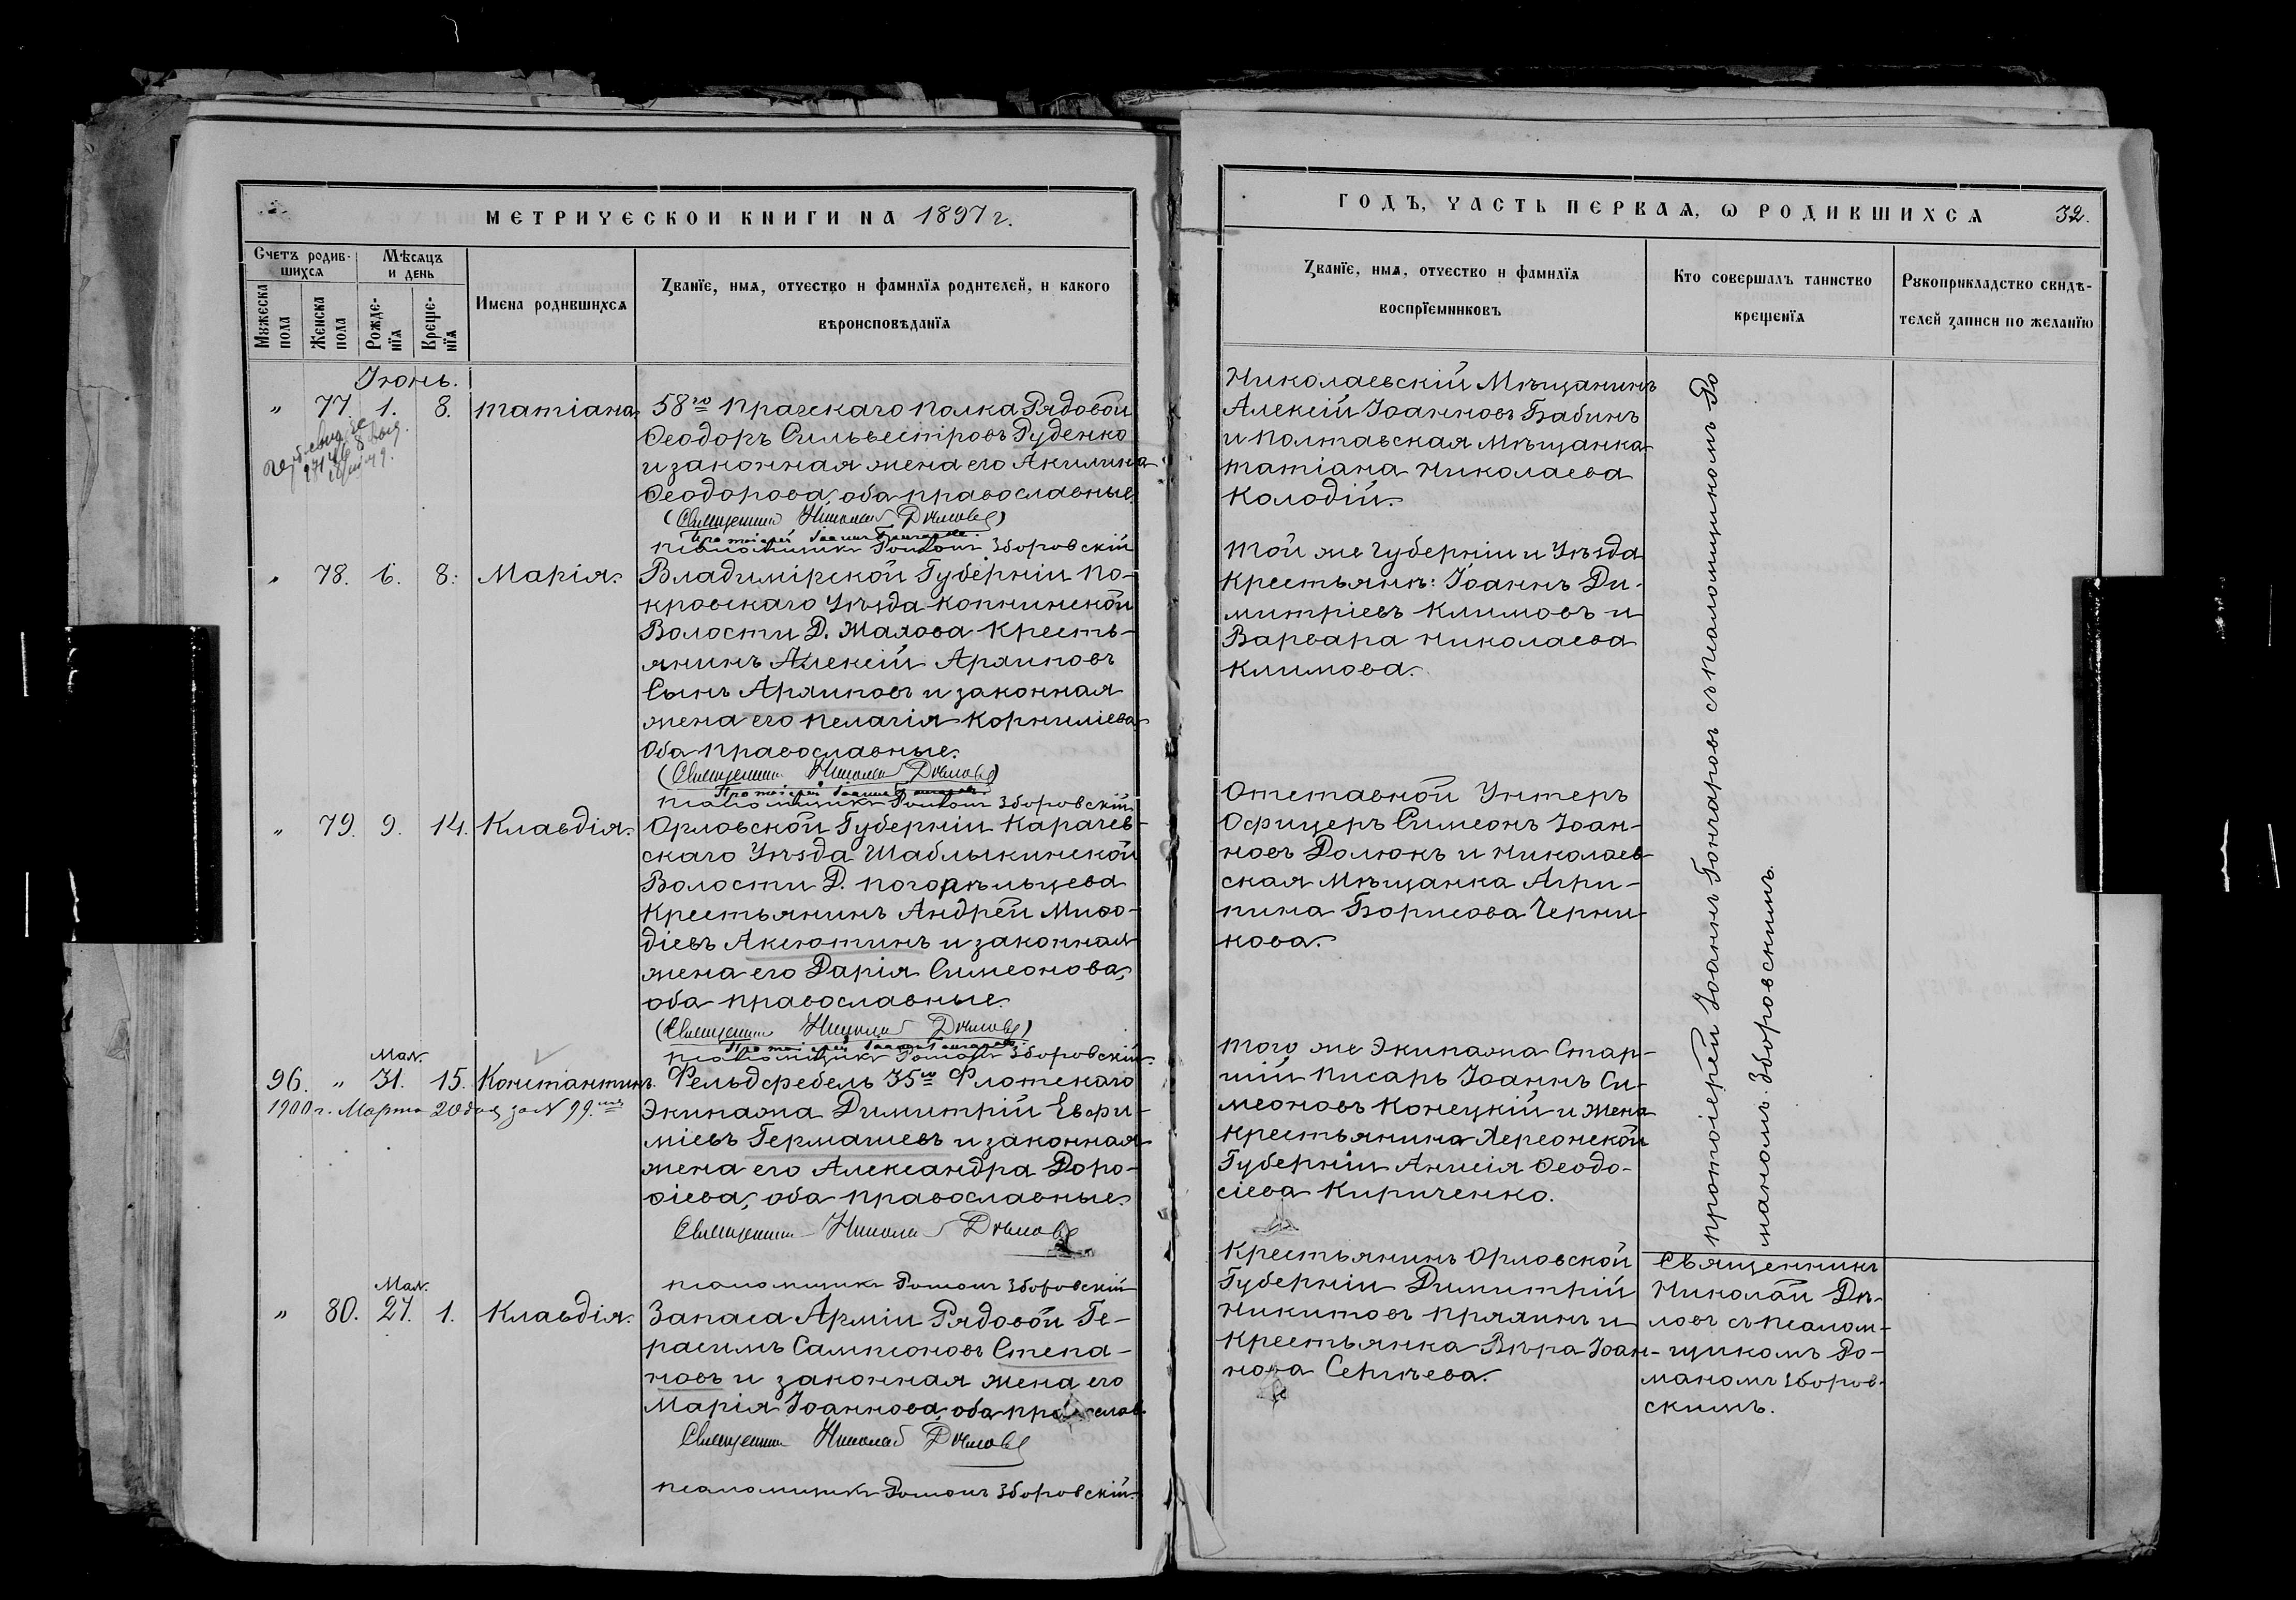 МЕТРИЧЕСКОЙ КНИГИ НА 1897 г.
Счетъ родив-
шихся
Мѣсяцъ
и день
Мужеска
пола
Женска
пола
Рожде-
нїя
Креще-
нїя
Имена родившихся
Званїе, имя, отчество и фамилїя родителей, и какого
вѣроисповѣданїя
Іюнь.
" 77. 1. 8. Татіана.
58го Пражскаго полка Рядовой
Ѳеодоръ Сильвестровъ Руденко
и законная жена его Акилина
Ѳеодорова, оба православные.
(Священникъ Николай Дѣловъ)
Протоіерей Іоаннъ Гончаровъ.
Псаломщикъ Романъ Зборовскій
" 78. 6. 8. Марія.
Владимірской Губерніи По-
кровскаго Уѣзда Копнинской
Волости Д. Жахова Кресть-
янинъ Алексій Архиповъ
Сынъ Архиповъ и законная
жена его Пелагія Корниліева
Оба православные.
(Священникъ Николай Дѣловъ)
Протоіерей Іоаннъ Гончаровъ.
Псаломщикъ Романъ Зборовскій
" 79. 9. 14. Клавдія.
Орловской Губерніи Карачев-
скаго Уѣзда Шаблыкинской
Волости Д. Погорѣльцева
Крестьянинъ Андрей Миѳо-
діевъ Аксютинъ и законная
жена его Дарія Симеонова,
оба православные.
(Священникъ Николай Дѣловъ)
Протоіерей Іоаннъ Гончаровъ.
Псаломщикъ Романъ Зборовскій.
Мая.
96. " 31. 15. Константинъ.
1900 г. Марта 20 за N 99.
Фельдфебель 35го Флотскаго
Экипажа Димитрій Евѳи-
міевъ Гермашевъ и законная
жена его Александра Доро-
ѳіева, оба православные.
Священникъ Николай Дѣловъ
Псаломщикъ Романъ Зборовскій
Мая.
" 80. 27. 1. Клавдія.
Запаса Арміи Рядовой Ге-
расимъ Сампсоновъ Степа-
новъ и законная жена его
Марія Іоаннова, оба православ.
Священникъ Николай Дѣловъ
Псаломщикъ Романъ Зборовскій.
ГОДЪ, ЧАСТЬ ПЕРВАЯ, Ѡ РОДИВШИХСЯ 32.
Званїе, имя, отчество и фамилїя
воспрїемниковъ
Кто совершалъ таинство
крещенїя
Рукоприкладство свидѣ-
телей записи по желанїю
Николаевскій Мѣщанинъ
Алексій Іоанновъ Бабинъ
и Полтавская Мѣщанка
Татіана Николаева
Колодій.
Той же Губерніи и Уѣзда
Крестьяне: Іоаннъ Ди-
митріевъ Климовъ и
Варвара Николаева
Климова.
Отставной Унтеръ
Офицеръ Симеонъ Іоан-
новъ Долюкъ и Николаев-
ская Мѣщанка Агри-
пина Борисова Черни-
кова.
Того же Экипажа Стар-
шій Писарь Іоаннъ Си-
меоновъ Конецкій и Жена
Крестьянина Херсонской
Губерніи Анисія Ѳеодо-
сіева Кириченко.
Крестьянинъ Орловской
Губерніи Димитрій
Никитовъ Пряхинъ и
Крестьянка Вѣра Іоан-
нова Сергѣева.
Протоіерей Іоаннъ Гончаровъ съ Псаломщикомъ Ро
маномъ Зборовскимъ.
Священникъ
Николай Дѣ-
ловъ съ Псалом-
щикомъ Ро-
маномъ Зборов-
скимъ.